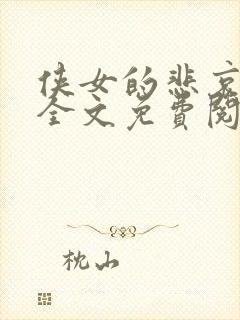 侠女的悲哀
全文免費閱
枕山